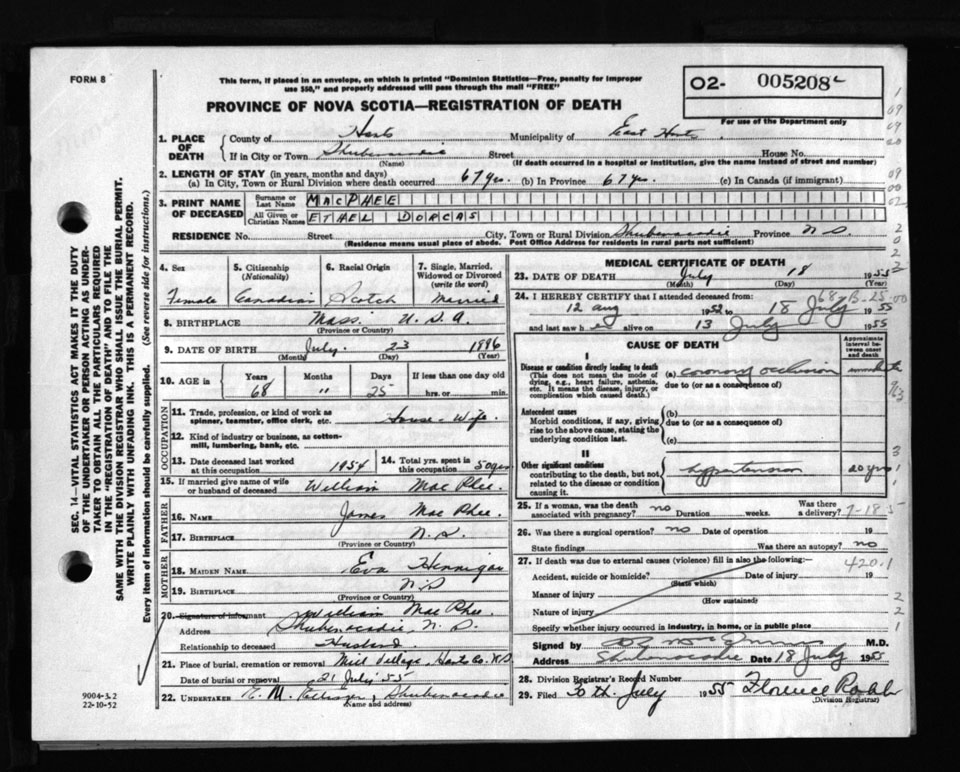 FORM 8
This form, if placed in an envelope, on which is printed "Dominion Statistics—Free, penalty for improper
use $50," and properly addressed will pass through the mail "FREE"
PROVINCE OF NOVA SCOTIA—REGISTRATION OF DEATH
02- 005208
For use of the Department only
SEC. 14—VITAL STATISTICS ACT MAKES IT THE DUTY
OF THE UNDERTAKER OR PERSON ACTING AS UNDER-
TAKER TO OBTAIN ALL THE PARTICULARS REQUIRED
IN THE "REGISTRATION OF DEATH" AND TO FILE THE
SAME WITH THE DIVISION REGISTRAR WHO SHALL ISSUE THE BURIAL PERMIT.
WRITE PLAINLY WITH UNFADING INK. THIS IS A PERMANENT RECORD.
Every item of Information should be carefully supplied. (See reverse side for instructions.)
1. PLACE OF DEATH
County of Hants Municipality of East Hants
If in City or Town Shubenacadie Street House No.
(Name) (If death occurred in a hospital or institution, give the name instead of street and number)
2. LENGTH OF STAY (in years, months and days)
(a) In City, Town or Rural Division where death occurred 67 yrs. (b) In Province 67 yrs. (c) In Canada (if immigrant)
3. PRINT NAME OF DECEASED
Surname or Last Name MACPHEE
All Given or Christian Names ETHEL DORCAS
RESIDENCE No. Street City, Town or Rural Division Shubenacadie Province N S
(Residence means usual place of abode. Post Office Address for residents in rural parts not sufficient)
4. Sex
Female
5. Citizenship
(Nationality)
Canadian
6. Racial Origin
Scotch
7. Single, Married,
Widowed or Divorced
(write the word)
Married
8. BIRTHPLACE Mass. U.S.A.
(Province or Country)
9. DATE OF BIRTH July 23 1886
(Month) (Day) (Year)
10. AGE in Years Months Days If less than one day old
68 11 25 hrs. or min.
OCCUPATION
11. Trade, profession, or kind of work as
spinner, teamster, office clerk, etc. House-Wife
12. Kind of industry or business, as cotton-
mill, lumbering, bank, etc.
13. Date deceased last worked
at this occupation 1954
14. Total yrs. spent in
this occupation 50 yrs
15. If married give name of wife
or husband of deceased William MacPhee
FATHER
16. NAME James MacPhee
17. BIRTHPLACE N.S.
(Province or Country)
MOTHER
18. MAIDEN NAME Eva Hennigar
19. BIRTHPLACE N.S
(Province or Country)
20. Signature of informant William MacPhee
Address Shubenacadie, N.S.
Relationship to deceased Husband
21. Place of burial, cremation or removal Mill Village, Hants Co. N.S
Date of burial or removal 21 July 55
22. UNDERTAKER Shubenacadie
(Name and address)
9004-3.2
22-10-52
MEDICAL CERTIFICATE OF DEATH
23. DATE OF DEATH July 18 1955
(Month) (Day) (Year)
24. I HEREBY CERTIFY that I attended deceased from:
12 Aug 1952 to 18 July 1955
and last saw h er alive on 13 July 1955
CAUSE OF DEATH
Approximate
interval be-
tween onset
and death
I
Disease or condition directly leading to death
(This does not mean the mode of
dying, e.g., heart failure, asthenia,
etc. It means the disease, injury, or
complication which caused death.)
(a) coronary occlusion
due to (or as a consequence of)
Antecedent causes
Morbid conditions, if any, giving
rise to the above cause, stating the
underlying condition last.
(b)
due to (or as a consequence of)
(c)
II
Other significant conditions
contributing to the death, but not
related to the disease or condition
causing it.
hypertension 20 yrs
25. If a woman, was the death
associated with pregnancy? no Duration weeks. Was there
a delivery?
26. Was there a surgical operation? no Date of operation 19
State findings Was there an autopsy? no
27. If death was due to external causes (violence) fill in also the following: 420.1
Accident, suicide or homicide? Date of injury 19
(State which)
Manner of injury
(How sustained)
Nature of injury
Specify whether injury occurred in industry, in home, or in public place
Signed by M.D.
Address Shubenacadie Date 18 July 1955
28. Division Registrar's Record Number
29. Filed 20 th. July 1955 Florence
(Division Registrar)